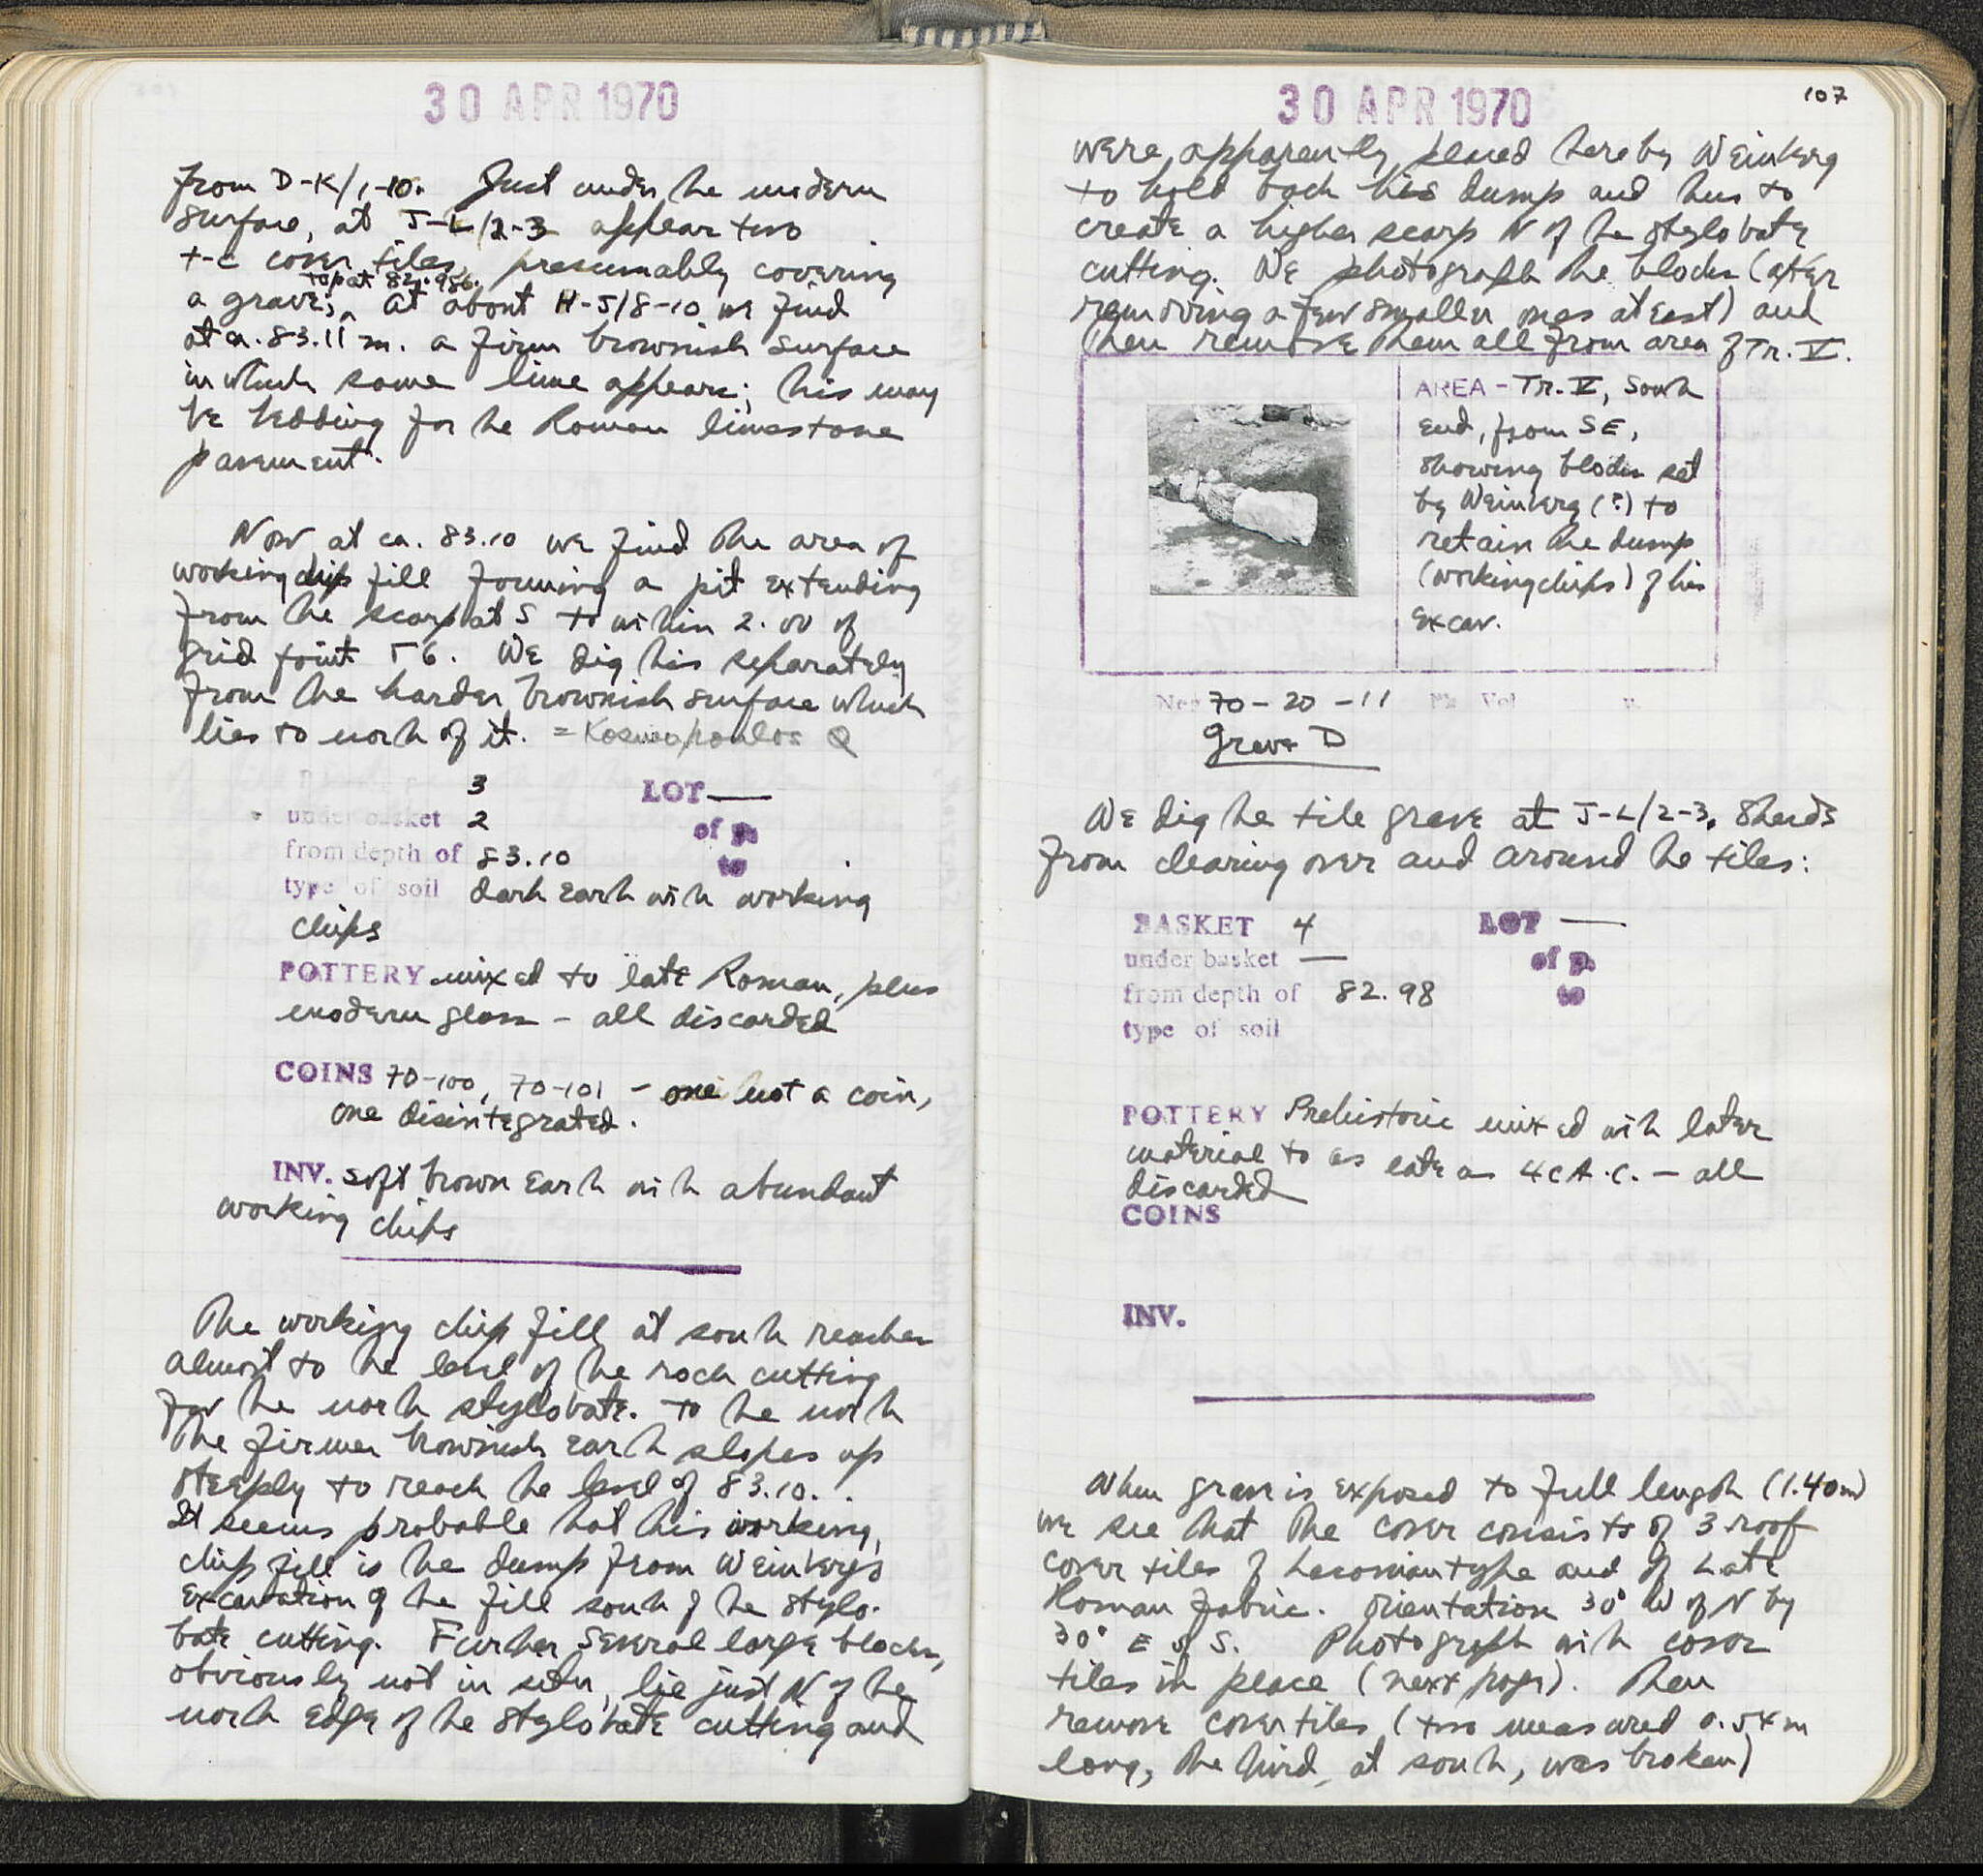 30 APR 1970
from D-K/1-10. Just under the modern
surface, at J-L/2-3 appear two
t-c cover tiles, presumably covering
top at 82.986.
a grave; at about H-J/8-10 we find
at ca. 83.11 m. a firm brownish surface
in which some lime appears; this may
be bedding for the Roman limestone
pavement.
Now at ca. 83.10 we find the area of
working chip fill forming a pit extending
from the scarp at S to within 2.00 of
grid point 56. We dig this separately
from the harder brownish surface which
lies to north of it. = Kosmopoulos Q
3 LOT —
under basket 2 of p.
from depth of 83.10 to
type of soil dark earth with working
chips
POTTERY mixed to late Roman, plus
modern glass - all discarded
COINS 70-100, 70-101 - one not a coin,
one disintegrated.
INV. soft brown earth with abundant
working chips
The working chip fill at south reaches
almost to the level of the rock cutting
for the north stylobate. To the north
the firmer brownish earth slopes up
steeply to reach the level of 83.10.
It seems probable that this working
chip fill is the dump from Weinberg's
excavation of the fill south of the stylo-
bate cutting. Further several large blocks,
obviously not in situ, lie just N of the
north edge of the stylobate cutting and
30 APR 1970
107
were, apparently, placed here by Weinberg
to hold back his dump and thus to
create a higher scarp N of the stylobate
cutting. We photograph the blocks (after
removing a few smaller ones at east) and
then remove them all from area of Tr. V.
AREA - Tr. V, South
end, from SE,
showing blocks set
by Weinberg (?) to
retain the dump
(working chips) of his
excav.
Neg 70-20-11 Ph Vol p.
Grave D
We dig the tile grave at J-L/2-3. Sherds
from clearing over and around the tiles:
BASKET 4 LOT —
under basket — of p.
from depth of 82.98 to
type of soil
POTTERY Prehistoric mixed with later
material to as late as 4c A.C. - all
discarded
COINS
INV.
When grave is exposed to full length (1.40m)
we see that the cover consists of 3 roof
cover tiles of Laconian type and of Late
Roman fabric. Orientation 30° W of N by
30° E of S. Photograph with cover
tiles in place (next page). Then
remove cover tiles (two measured 0.54m
long, the third, at south, was broken)